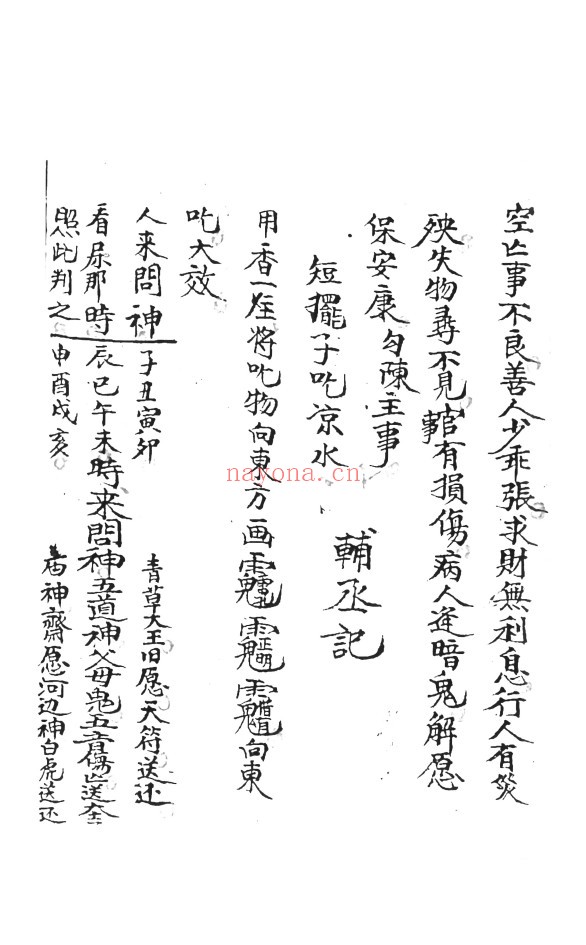 空亡事不良善人少乖張求財無利息行人有災
殃失物尋不見官事有損傷病人逢暗鬼解愿
保安康 勾陳主事
短擺子吃凉水 輔丞記
用香一炷將吃物向東方画 向東
吃大效
人来問神 子丑寅卯 青草大王旧愿天符送还
看屎那時 辰巳午未 時来問神五道神父母鬼五音傷亡送
照此判之 申酉戌亥 神齋愿河边神白虎送还
nayona.cn